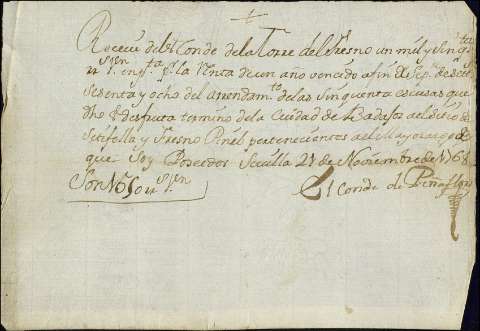 Receví del Conde de la Torre del Fresno un mil y Sinq.ta
rs Vn en qta pr. la Renta de un año vencido a fin de Sep.re de Sett.
Sesenta y ocho del arrendam.to de las Sinquenta escusas que
dho Sr disfruta termino de la Ciudad de Badajos al sitio de
Setefilla y Fresno Pinel pertenecientes al Mayorazgo de
que Soy Poseedor Sevilla 21 de Noviembre de 1768
Son rs Vn
El Conde de Peñaflor